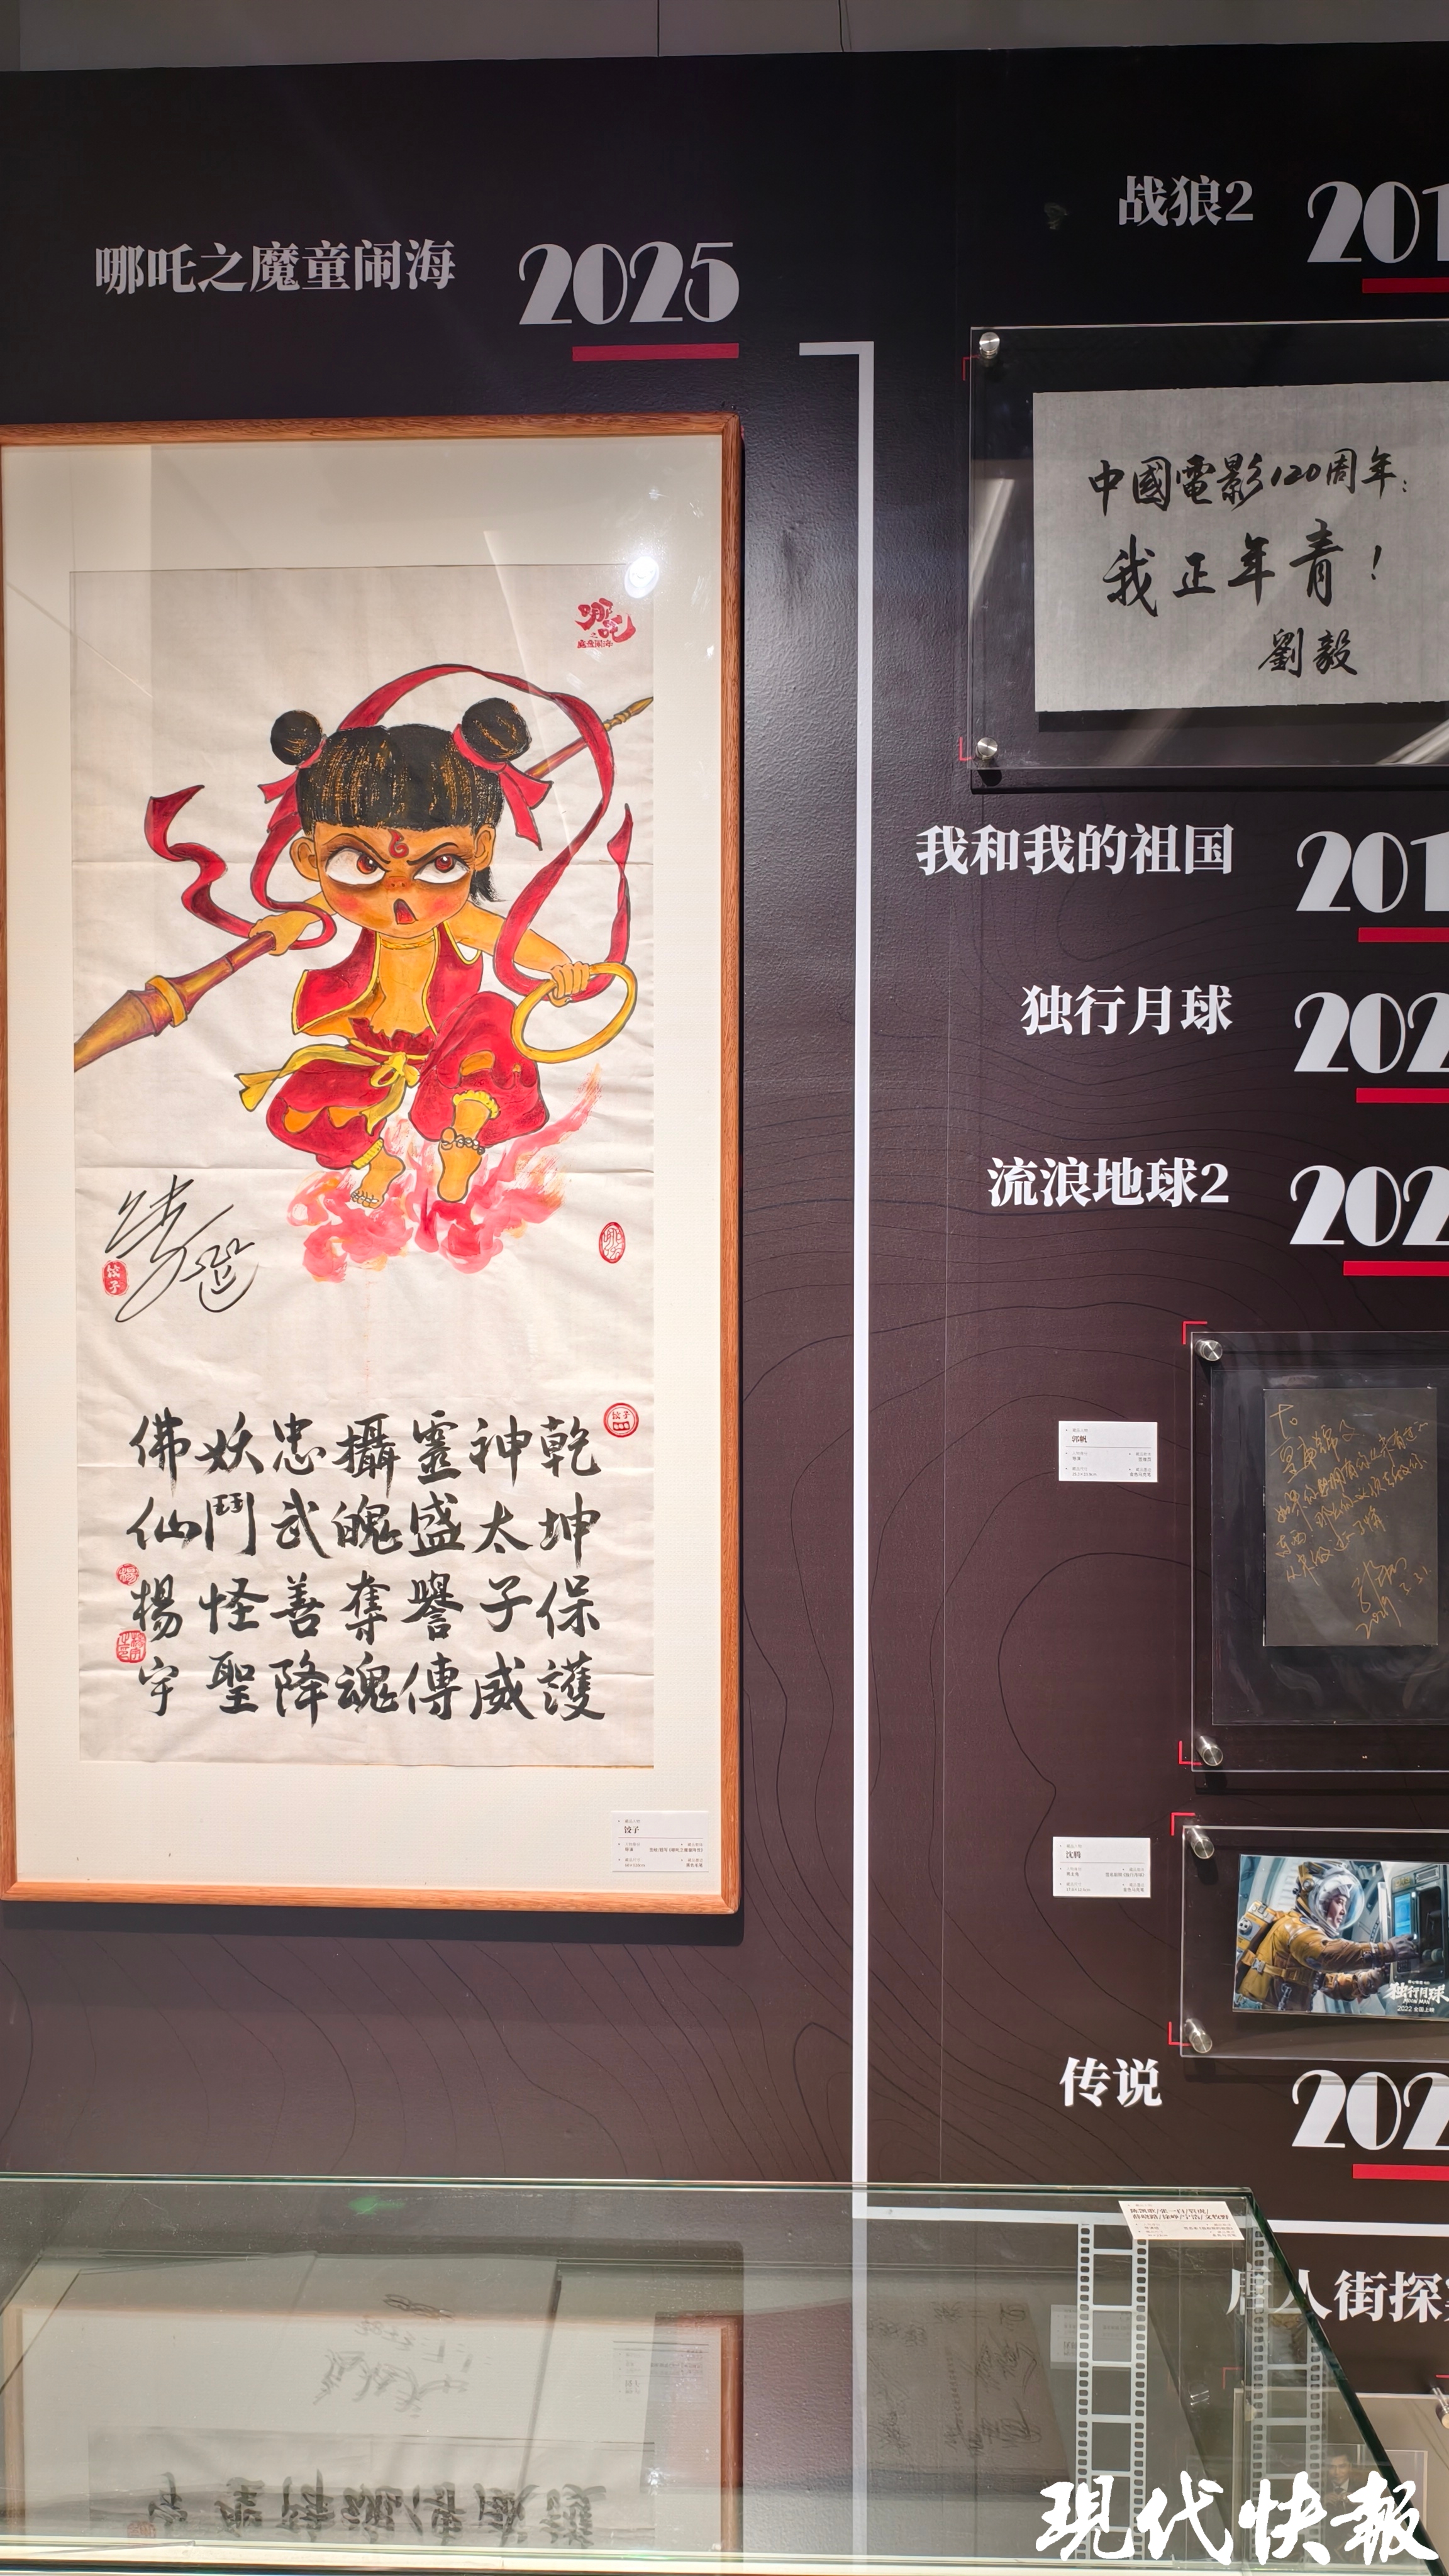 哪吒之魔童闹海 2025
哪吒
之
魔童闹海
饺子
乾坤保護
神太子威
靈盛譽傳
攝魄奪魂
忠武善降
妖鬥怪聖
佛仙楊宇
饺子
战狼2 201
中國電影120周年:
我正年青!
劉毅
我和我的祖国 201
独行月球 202
流浪地球2 202
郭帆
沈腾
独行月球
2022 全国上映
传说 202
唐人街探
現代快報